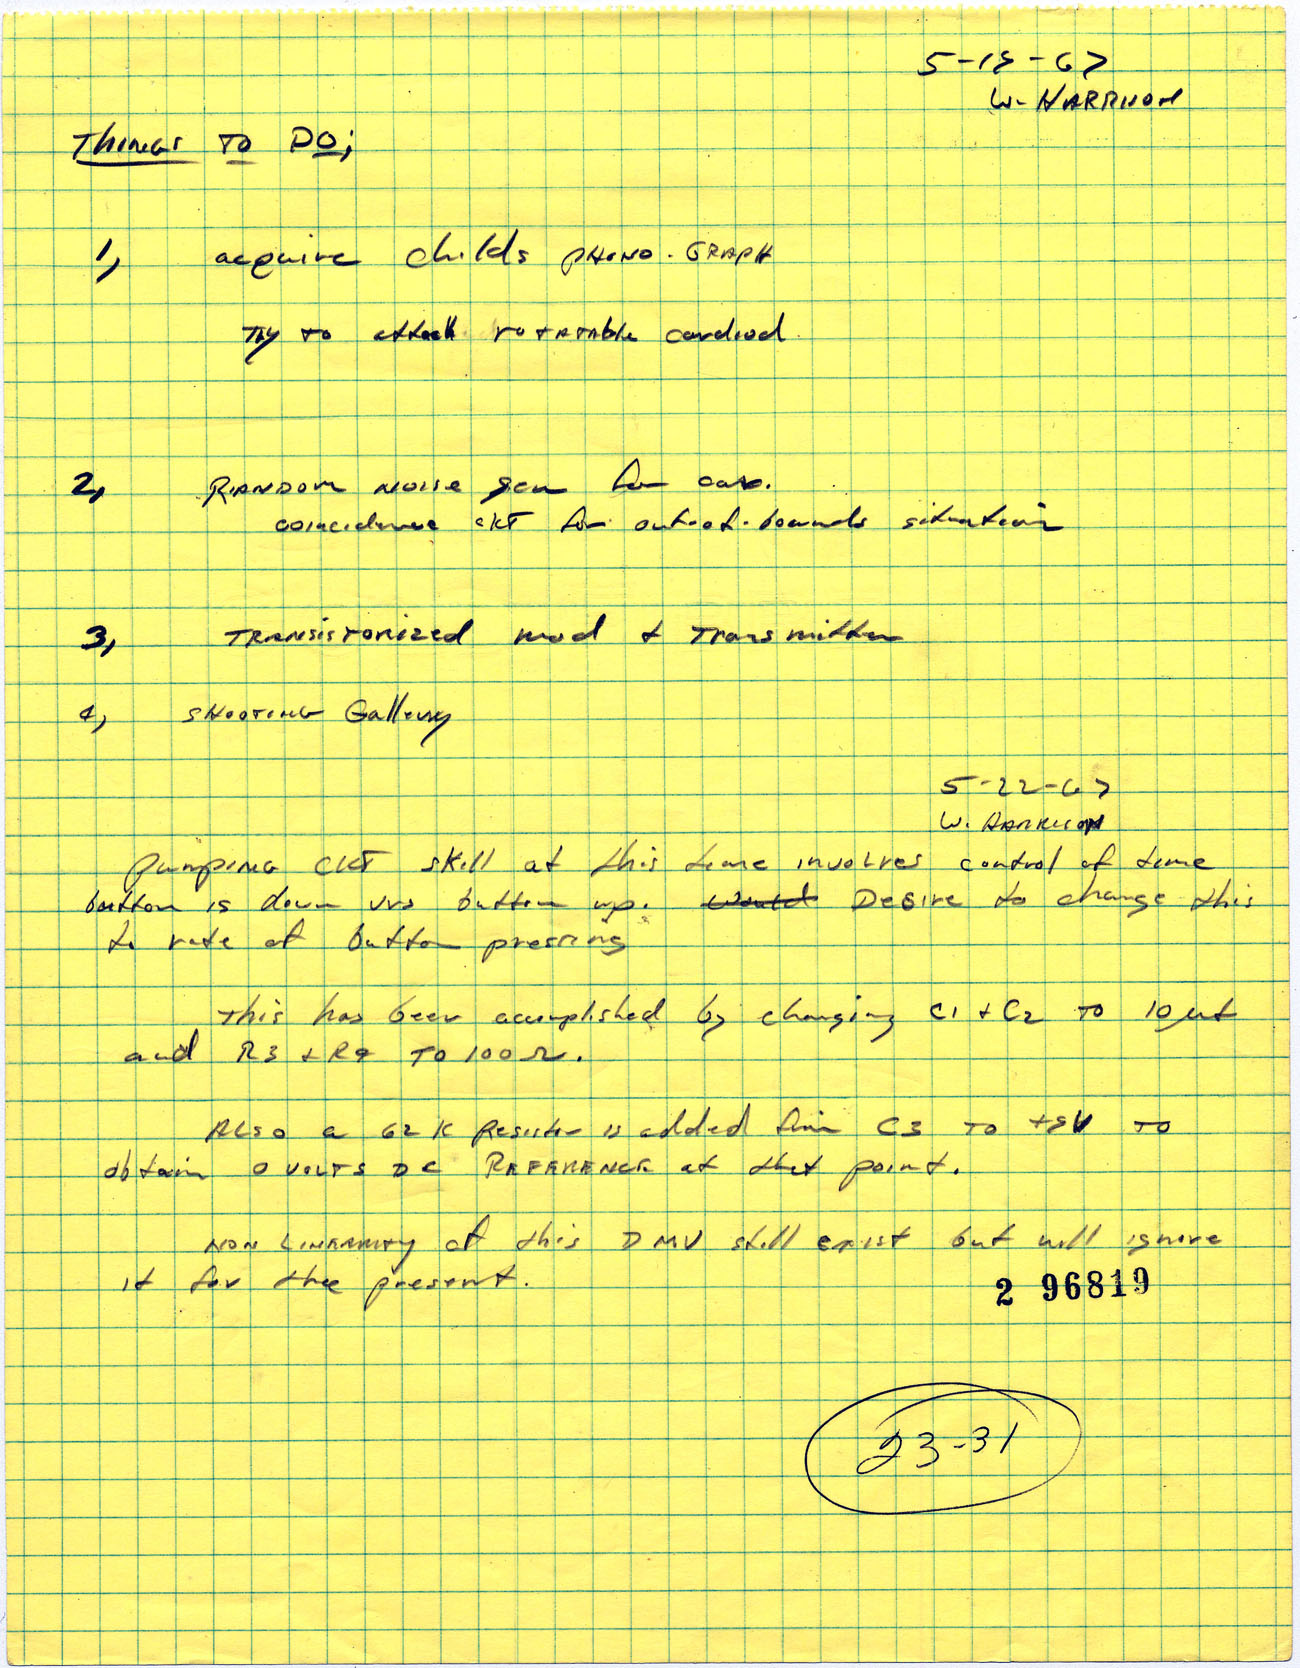 5-18-67
W. HARRISON
THINGS TO DO;
1, acquire childs PHONO-GRAPH
Try to attach rotatable cardiod
2, RANDOM NOISE gen for car.
coincidence CKT for out-of-bounds situation
3, TRANSISTORIZED mod & Transmitter
4, SHOOTING Gallery
5-22-67
W. HARRISON
Pumping CKT skill at this time involves control of time
button is down vrs button up. Would Desire to change this
to rate of button pressing
This has been accomplished by changing C1 + C2 to 10μf
and R3 + R9 TO 100Ω.
Also a 62K Resistor is added from C3 to +5V TO
obtain 0 VOLTS DC REFERENCE at that point.
NON LINEARITY of this DMV still exist but will ignore
it for thee present.
2 96819
23-31